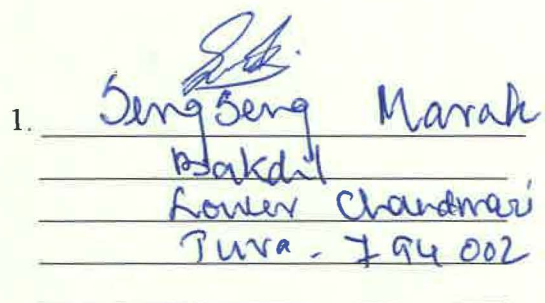 1. Seng Seng Marak
Bakdil
Lower Chandmari
Tura - 794 002